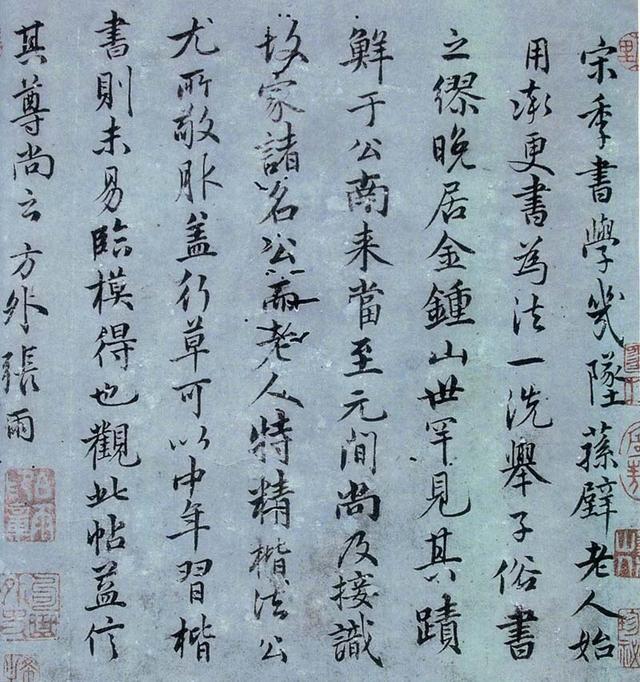 宋季書學幾墜蓀壁老人始
用率更書為法一洗舉子俗書
之繆晚居金鍾山世罕見其蹟
鮮于公南来當至元間尚及接識
故家諸名公而老人特精楷法公
尤所敬服盖行草可以中年習楷
書則未易臨模得也觀此帖益信
其尊尚云方外張雨